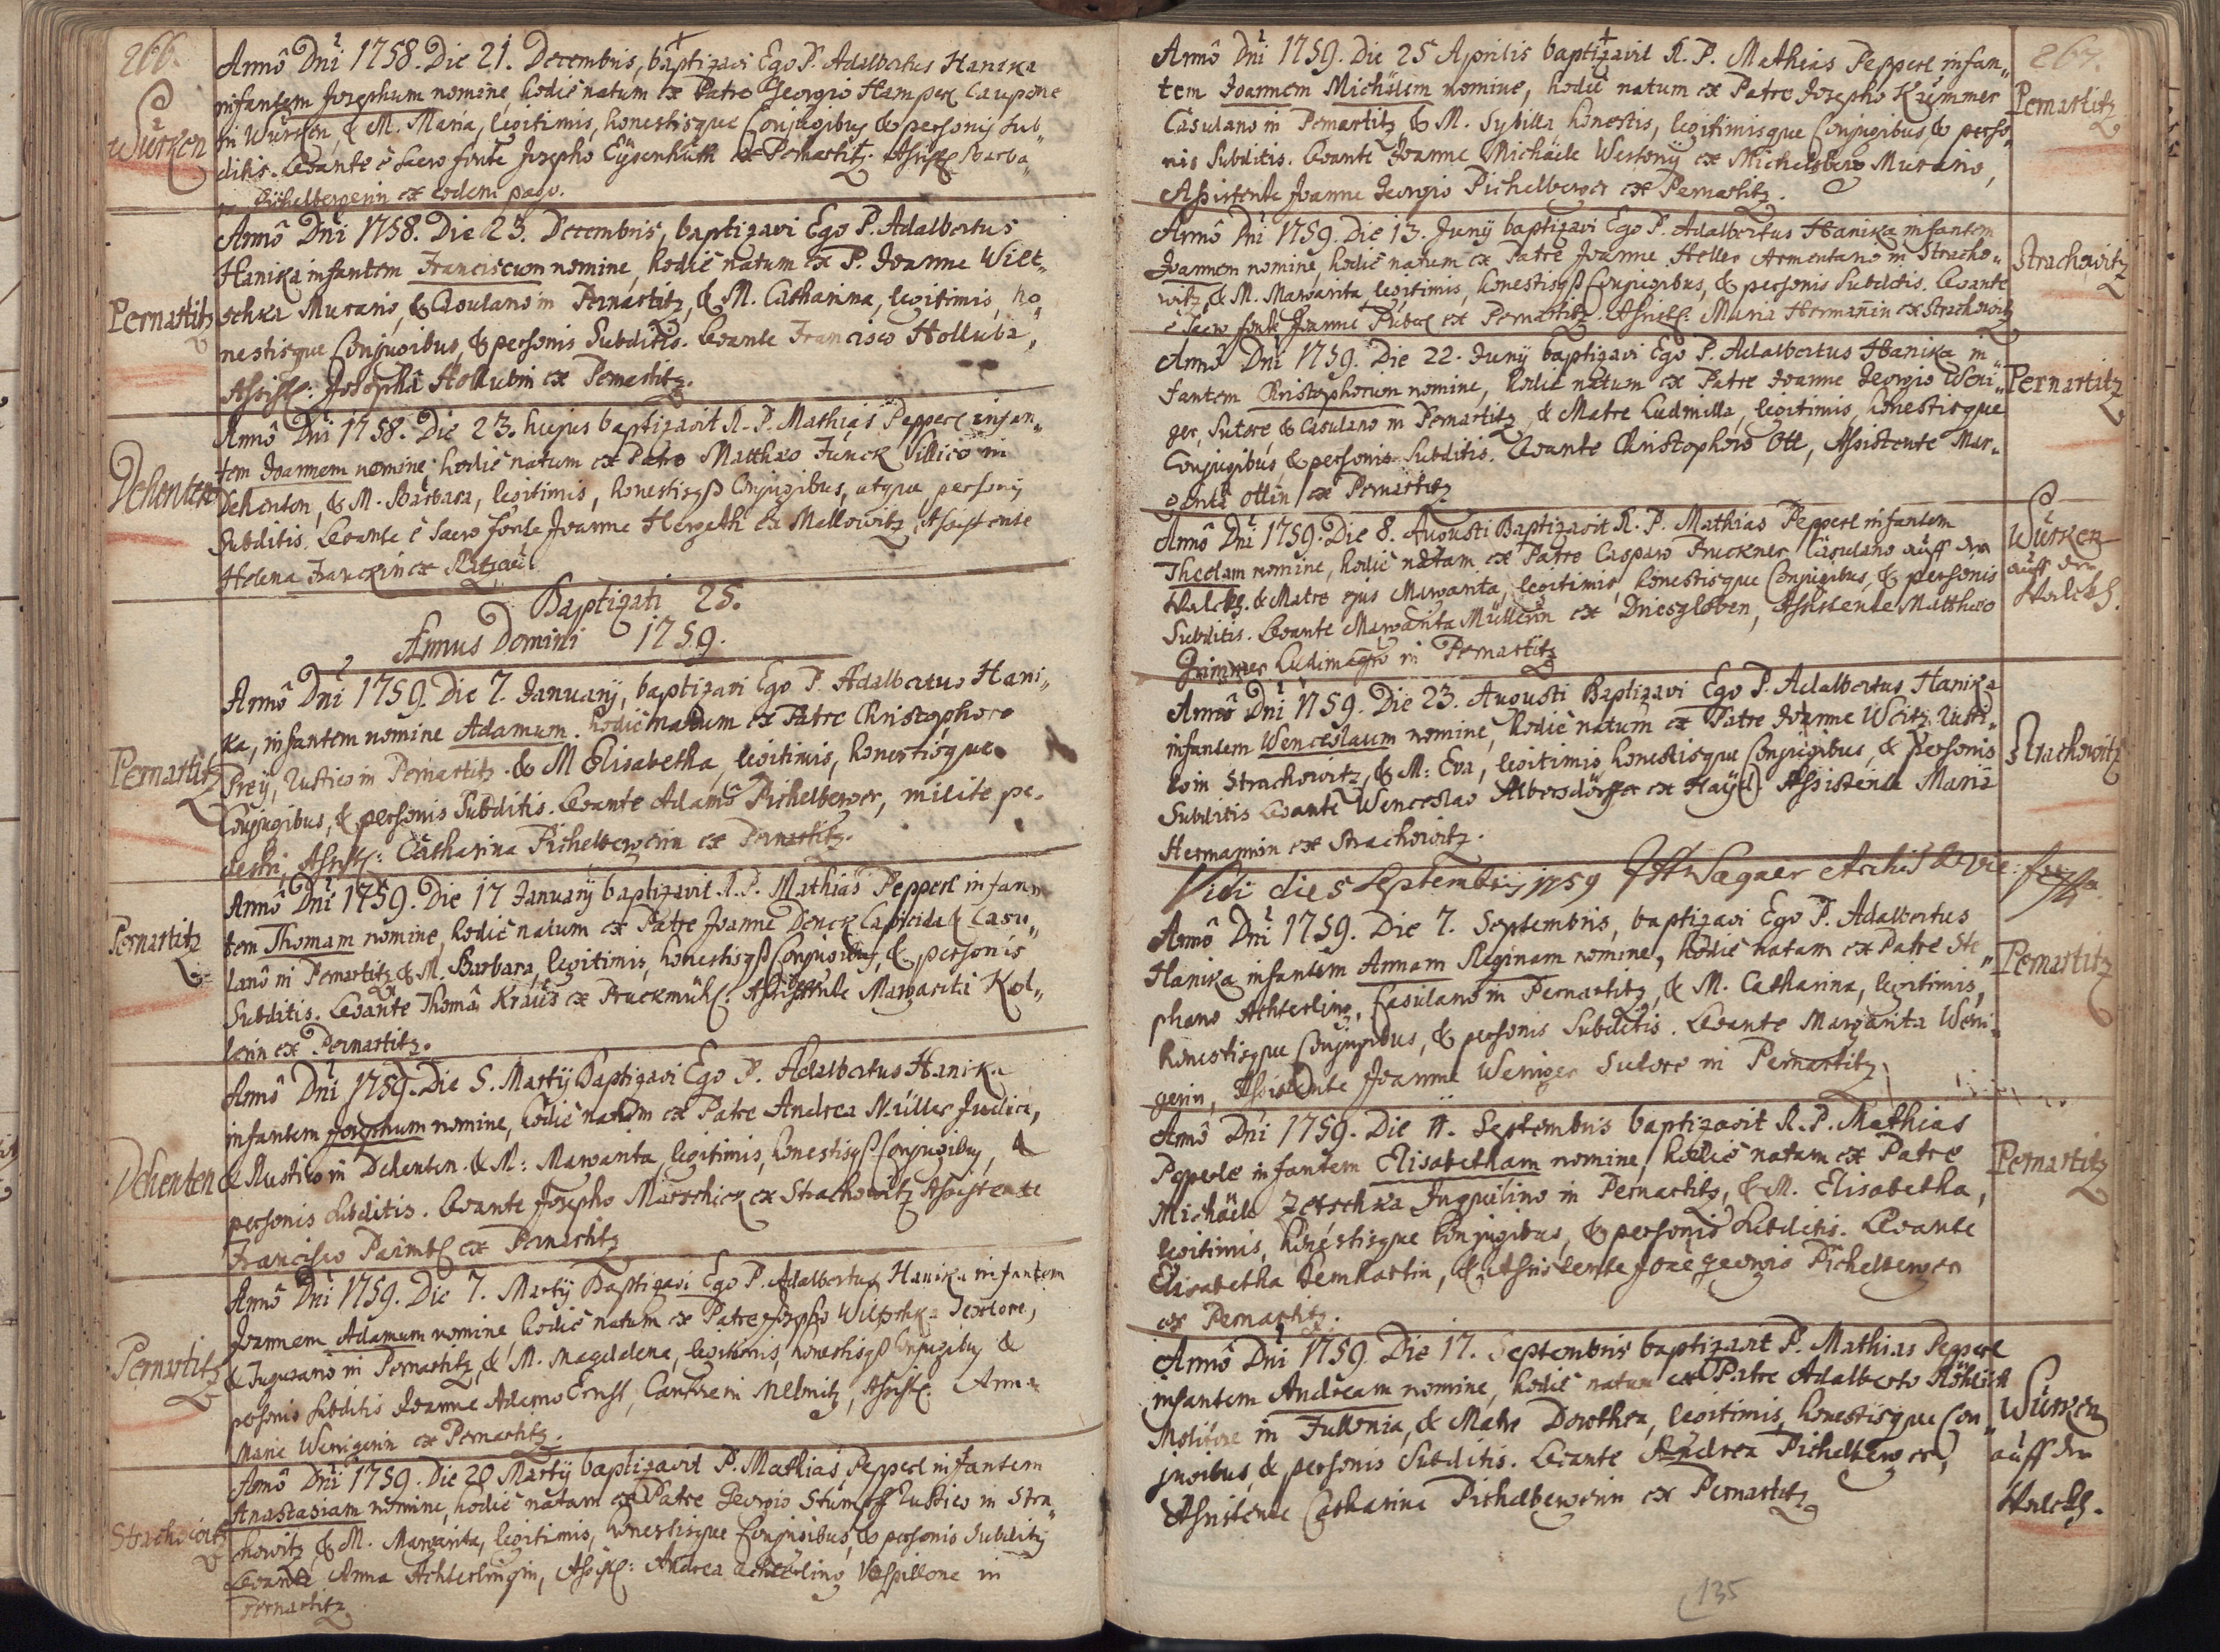 266.
Würken
Annô Dni 1758. Die 21. Decembris, baptizavi Ego P. Adalbertus Hanika
infantem Josephum nomine, hodiè natum ex Patre Georgio Hamperl Caupone
in Würken, & M. Maria, legitimis, honestisque Conjugibus, & personis sub„
ditis. Levante è sacro fonte Josepho Eÿsenhuth ex Pernartitz. Assist: Barba„
Pichelbergerin ex eodem pago.
Pernartitz
Annô Dni 1758. Die 23. Decembris, baptizavi Ego P. Adalbertus
Hanika infantem Franciscum nomine, hodiè natum ex P. Joanne Wilt„
schka Murario, & Casulano in Pernartitz, & M. Catharina, legitimis, ho„
nestisque Conjugibus, & personis Subditis. Levante Francisco Holluba,
Assist: Josepha Hollubin ex Pernartitz.
Dehenten
Annô Dni 1758. Die 23. hujus baptizavit R. P. Mathias Pepperl infan„
tem Joannem nomine hodiè natum ex Patre Matthæo Funck Villico in
Dehenten, & M. Barbara, legitimis, honestisqß Conjugibus, atque personis
Subditis. Levante è sacro fonte Joanne ex Mallowitz, Assistente
Helena Franckin ex
Baptizati 25.
Annus Domini 1759.
Pernartitz
Annô Dni 1759. Die 7. Januarÿ, baptizavi Ego P. Adalbertus Hani„
ka, infantem nomine Adamum. hodiè natum ex Patre Christophoro
Preÿ, Rustico in Pernartitz. & M Elisabetha, legitimis, honestisque
Conjugibus, & personis Subditis. Levante Adamô Pichelberger, milite pe„
destri, Assist: Catharina Pichelbergerin ex Pernartitz.
Pernartitz
Annô Dni 1759. Die 17 Januarÿ baptizavit R. P. Mathias Pepperl infan„
tem Thomam nomine, hodiè natum ex Patre Joanne Denck Lapicida & Casu„
lanô in Pernartitz, & M. Barbara, legitimis, honestisqß Conjugibus, & personis
Subditis. Levante Thomâ Kraüs ex Pruckmühl: Assistente Margarita Kol„
lerin ex Pernartitz.
Dehenten
Annô Dni 1759. Die 5. Martÿ Baptizavi Ego P. Adalbertus Hanika
infantem Josephum nomine, hodiè natum ex Patre Andrea Müller Judice,
& Rustico in Dehenten. & M: Margarita, legitimis, honestisqß Conjugibus, &
personis subditis. Levante Josepho Marschick ex Strachowitz Assistente
Francisco Paimbl ex Pernartitz
Pernartitz
Annô Dni 1759. Die 7. Martÿ Baptizavi Ego P. Adalbertus Hanika infantem
Joannem Adamum nomine, hodiè natum ex Patre Josepho Wiltschka Textore,
& Tugurano in Pernartitz, & M. Magdalena, legitimis, honestisqß Conjugibus &
personis subditis Joanne Adamo Ernst, Cantore in Melnitz, Assist: Anna
Maria Wenigerin ex Pernartitz.
Strachowitz
Annô Dni 1759. Die 20 Martÿ baptizavit P. Mathias Pepperl infantem
Anastasiam nomine, hodiè natam ex Patre Georgio Stumpff Rustico in Stra„
chowitz, & M. Margarita, legitimis, honestisque Conjugibus, & personis subditis
Levante Anna Achterlingin, Assist: Andrea Achterling Vespillone in
Pernartitz
267.
Annô Dni 1759. Die 25 Aprilis baptizavit R. P. Mathias Pepperl infan„
tem Joannem Michäelem nomine, hodiè natum ex Patre Josepho Krümmer
Casulano in Pernartitz, & M. Sybilla, honestis, legitimisque Conjugibus, & perso„
nis Subditis. Levante Joanne Michäele Westonÿ ex Michelsberg Murario,
Assistente Joanne Georgio Pichelberger ex Pernartitz.
Pernartitz
Annô Dni 1759. Die 13. Junÿ baptizavi Ego P. Adalbertus Hanika infantem
Joannem nomine, hodiè natum ex Patre Joanne Heller Armentario in Stracho„
witz, & M. Margarita, legitimis, honestisqß Conjugibus, & personis Subditis. Levante
è sacro fonte Joanne ex Pernartitz. Assist: Maria Hermañin ex Strachowitz
Strachowitz
Annô Dni 1759. Die 22. Junÿ baptizavi Ego P. Adalbertus Hanika in„
fantem Christophorum nomine, hodiè natum ex Patre Joanne Georgio Weni„
ger, Sutore, & Casulano in Pernartitz, & Matre Ludmilla, legitimis, honestisque
Conjugibus, & personis Subditis. Levante Christophoro Ott, Assistente Mar„
garita Ottin ex Pernartitz
Pernartitz
Annô Dni 1759. Die 8. Augusti Baptizavit R. P. Mathias Pepperl infantem
Theclam nomine, hodiè natam ex Patre Casparo Pruckner Casulano auff der
Walckh. & Matre ejus Margarita, legitimis, honestisque Conjugibus, & personis
Subditis. Levante Margarita Müllerin ex Driesgloben, Assistente Matthæo
Grimmer Ludimagro in Pernartitz
Würken
auff der
Walckh.
Annô Dni 1759. Die 23. Augusti Baptizavi Ego P. Adalbertus Hanika
infantem Wenceslaum nomine, hodiè natum ex Patre Joanne Weitz, Rusti„
co in Strachowitz, & M: Eva, legitimis honestisque Conjugibus, & personis
Subditis Levante Wenceslao Albersdörffer ex Haÿd. Assistente Maria
Hermannin ex Strachowitz.
Strachowitz
Vidi die 5 Septembris 1759
Annô Dni 1759. Die 7. Septembris, baptizavi Ego P. Adalbertus
Hanika infantem Annam Reginam nomine, hodiè natam ex Patre Ste„
phano Achterling, Casulano in Pernartitz, & M. Catharina, legitimis,
honestisque Conjugibus, & personis Subditis. Levante Margarita Weni„
gerin, Assistente Joanne Weniger Sutore in Pernartitz
Pernartitz
Annô Dni 1759. Die 11. Septembris baptizavit R. P. Mathias
Pepperle infantem Elisabetham nomine, hodiè natam ex Patre
Michäele Zetschka Inquilino in Pernartitz, & M. Elisabetha,
legitimis, honestisque Conjugibus, & personis Subditis. Levante
Elisabetha Lemhartin, & Assistente Joãe Georgio Pichelberger
ex Pernartitz.
Pernartitz
Annô Dni 1759. Die 17. Septembris baptizavit P. Mathias Pepperl
infantem Andream nomine, hodiè natum ex Patre Adalberto Röhlich
Molitore in Fullonia, & Matre Dorothea, legitimis, honestisque Con„
jugibus, & personis Subditis. Levante Andrea Pichelberger,
Assistente Catharina Pichelbergerin ex Pernartitz
Würken
auff der
Walckh.
135